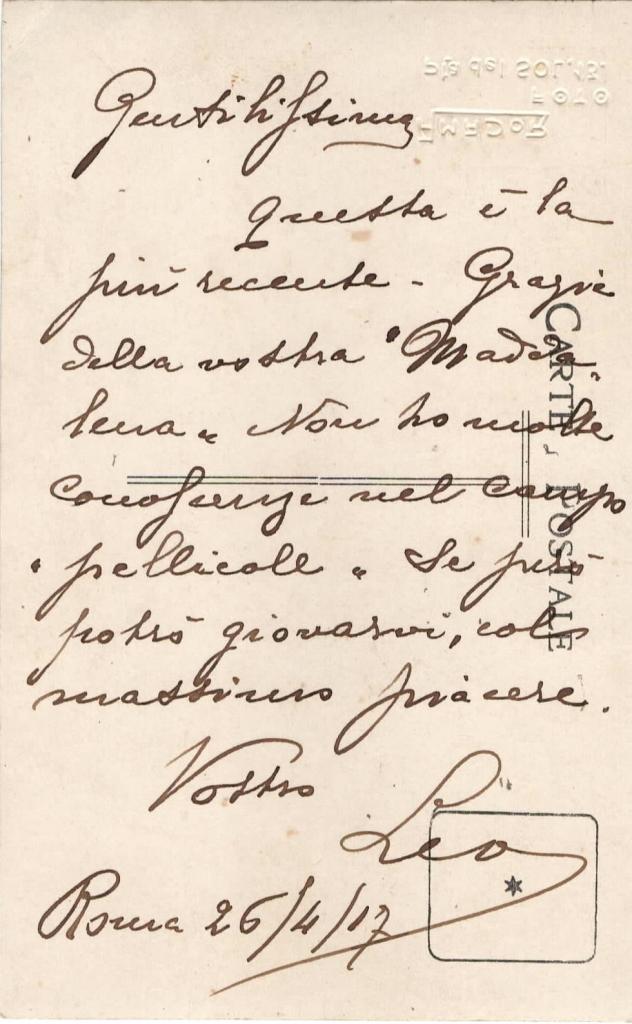 Pta del SOL.13.
FOTO
AMADOR
Gentilissima
Questa è la
più recente - Grazie
della vostra "Madda„
lena„ Non ho molte
conoscenze nel campo
"pellicole„ Se però
potrò giovarvi, col
massimo piacere.
Vostro
Leo
Roma 26/4/17
CARTE POSTALE